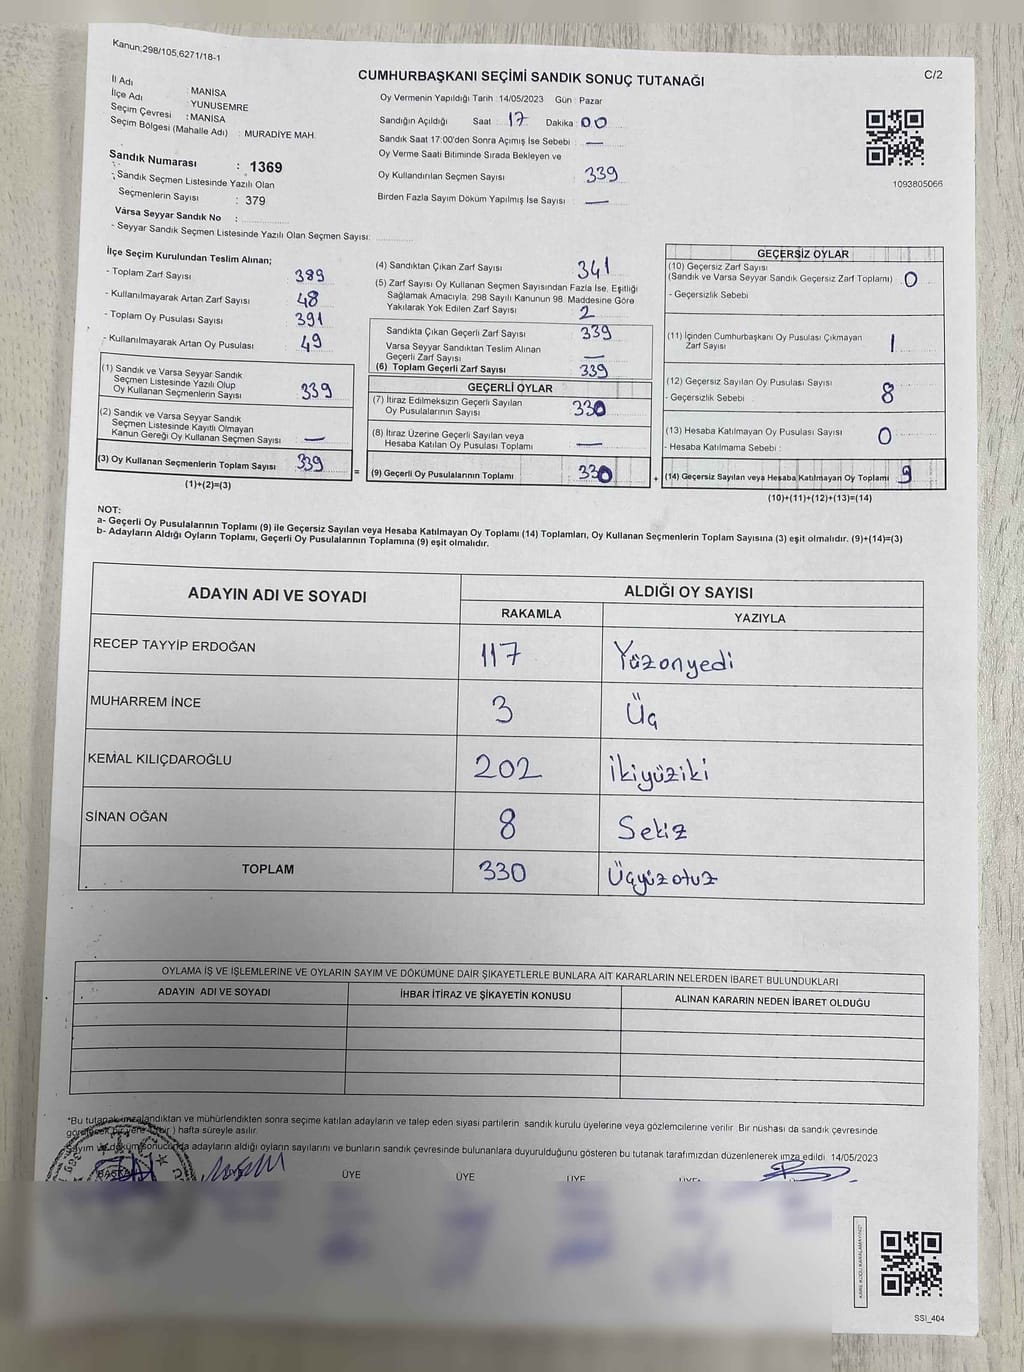 Kanun;298/105,6271/18-1
C/2
CUMHURBAŞKANI SEÇİMİ SANDIK SONUÇ TUTANAĞI
İl Adı : MANİSA
İlçe Adı : YUNUSEMRE
Seçim Çevresi : MANİSA
Seçim Bölgesi (Mahalle Adı) : MURADİYE MAH.
Sandık Numarası : 1369
- Sandık Seçmen Listesinde Yazılı Olan
Seçmenlerin Sayısı : 379
Varsa Seyyar Sandık No :
- Seyyar Sandık Seçmen Listesinde Yazılı Olan Seçmen Sayısı:
Oy Vermenin Yapıldığı Tarih : 14/05/2023 Gün : Pazar
Sandığın Açıldığı Saat : 17 Dakika : 00
Sandık Saat 17:00'den Sonra Açımış İse Sebebi : —
Oy Verme Saati Bitiminde Sırada Bekleyen ve
Oy Kullandırılan Seçmen Sayısı : 339
Birden Fazla Sayım Döküm Yapılmış İse Sayısı : —
1093805066
İlçe Seçim Kurulundan Teslim Alınan;
- Toplam Zarf Sayısı : 389
- Kullanılmayarak Artan Zarf Sayısı : 48
- Toplam Oy Pusulası Sayısı : 391
- Kullanılmayarak Artan Oy Pusulası : 49
(1) Sandık ve Varsa Seyyar Sandık
Seçmen Listesinde Yazılı Olup
Oy Kullanan Seçmenlerin Sayısı : 339
(2) Sandık ve Varsa Seyyar Sandık
Seçmen Listesinde Kayıtlı Olmayan
Kanun Gereği Oy Kullanan Seçmen Sayısı : —
(3) Oy Kullanan Seçmenlerin Toplam Sayısı : 339
(1)+(2)=(3)
(4) Sandıktan Çıkan Zarf Sayısı : 341
(5) Zarf Sayısı Oy Kullanan Seçmen Sayısından Fazla İse, Eşitliği
Sağlamak Amacıyla, 298 Sayılı Kanunun 98. Maddesine Göre
Yakılarak Yok Edilen Zarf Sayısı : 2
Sandıkta Çıkan Geçerli Zarf Sayısı : 339
Varsa Seyyar Sandıktan Teslim Alınan
Geçerli Zarf Sayısı : —
(6) Toplam Geçerli Zarf Sayısı : 339
GEÇERLİ OYLAR
(7) İtiraz Edilmeksizin Geçerli Sayılan
Oy Pusulalarının Sayısı : 330
(8) İtiraz Üzerine Geçerli Sayılan veya
Hesaba Katılan Oy Pusulası Toplamı : —
= (9) Geçerli Oy Pusulalarının Toplamı : 330
GEÇERSİZ OYLAR
(10) Geçersiz Zarf Sayısı
(Sandık ve Varsa Seyyar Sandık Geçersiz Zarf Toplamı) : 0
- Geçersizlik Sebebi :
(11) İçinden Cumhurbaşkanı Oy Pusulası Çıkmayan
Zarf Sayısı : 1
(12) Geçersiz Sayılan Oy Pusulası Sayısı : 8
- Geçersizlik Sebebi :
(13) Hesaba Katılmayan Oy Pusulası Sayısı : 0
- Hesaba Katılmama Sebebi :
+ (14) Geçersiz Sayılan veya Hesaba Katılmayan Oy Toplamı : 9
(10)+(11)+(12)+(13)=(14)
NOT:
a- Geçerli Oy Pusulalarının Toplamı (9) ile Geçersiz Sayılan veya Hesaba Katılmayan Oy Toplamı (14) Toplamları, Oy Kullanan Seçmenlerin Toplam Sayısına (3) eşit olmalıdır. (9)+(14)=(3)
b- Adayların Aldığı Oyların Toplamı, Geçerli Oy Pusulalarının Toplamına (9) eşit olmalıdır.
ADAYIN ADI VE SOYADI ALDIĞI OY SAYISI
RAKAMLA YAZIYLA
RECEP TAYYİP ERDOĞAN 117 Yüzonyedi
MUHARREM İNCE 3 Üç
KEMAL KILIÇDAROĞLU 202 İkiyüziki
SİNAN OĞAN 8 Sekiz
TOPLAM 330 Üçyüzotuz
OYLAMA İŞ VE İŞLEMLERİNE VE OYLARIN SAYIM VE DÖKÜMÜNE DAİR ŞİKAYETLERLE BUNLARA AİT KARARLARIN NELERDEN İBARET BULUNDUKLARI
ADAYIN ADI VE SOYADI İHBAR İTİRAZ VE ŞİKAYETİN KONUSU ALINAN KARARIN NEDEN İBARET OLDUĞU
*Bu tutanak imzalandıktan ve mühürlendikten sonra seçime katılan adayların ve talep eden siyasi partilerin sandık kurulu üyelerine veya gözlemcilerine verilir. Bir nüshası da sandık çevresinde
) hafta süreyle asılır.
adayların aldığı oyların sayılarını ve bunların sandık çevresinde bulunanlara duyurulduğunu gösteren bu tutanak tarafımızdan düzenlenerek imza edildi. 14/05/2023
BAŞKAN ÜYE ÜYE ÜYE
SSI_404